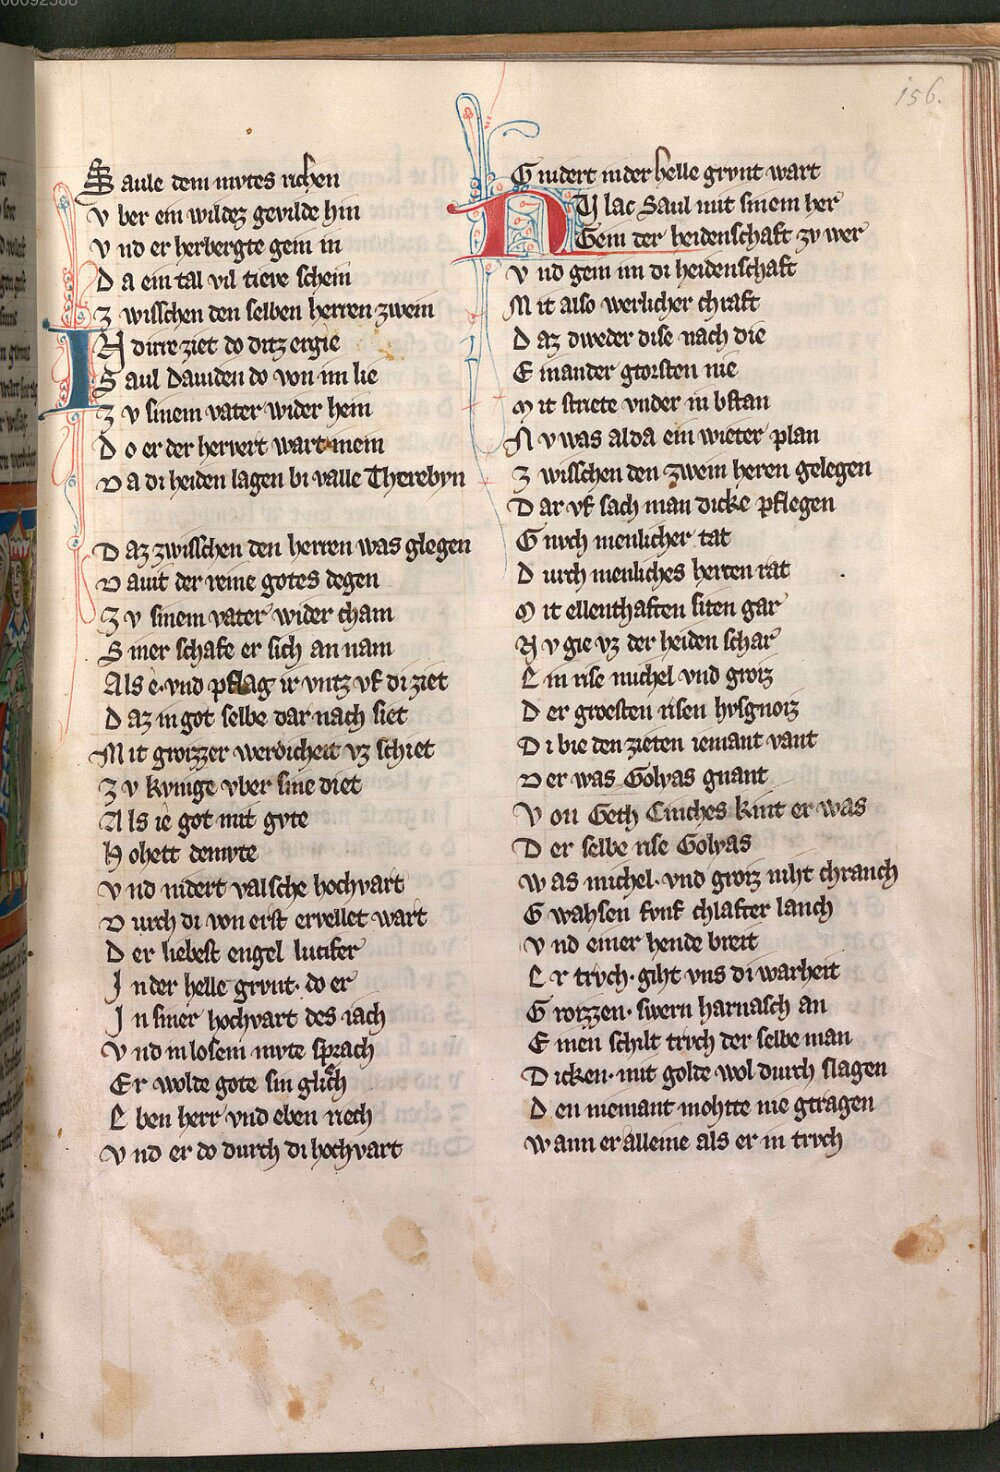 156.
Saule dem mvtes richen
Vber ein wildez gevilde hin
Vnd er herbergte gein in
Da ein tal vil tieve schein
Zwisschen den selben herren zwein
IN dirre ziet do ditz ergie
Saul Dauiden do von im lie
Zv sinem vater wider hein
Do er der hervert wart mein
Da di heiden lagen bi valle Therebyn
Daz zwisschen den herren was glegen
Dauit der reine gotes degen
Zv sinem vater wider cham
Siner schafe er sich an nam
Als e vnd pflag ir vntz vf di ziet
Daz in got selbe dar nach siet
Mit groizzer werdicheit vz schiet
Zv kvnige vber sine diet
Als ie got mit gvte
Hohett demvte
Vnd nidert valsche hochvart
Durch di von erst ervellet wart
Der liebest engel lucifer
In der helle grvnt. do er
In siner hochvart des iach
Vnd in losem mvte sprach
Er wolde gote sin glich
Eben herr vnd eben rech
Vnd er do durch di hochvart
Gnidert in der helle grvnt wart
NV lac Saul mit sinem her
Gein der heidenschaft zv wer
Vnd gein im di heidenschaft
Mit also werlicher chraft
Daz dweder dise nach die
Einander gtorsten nie
Mit striete vnder in bstan
Nv was alda ein wieter plan
Zwisschen den zwein heren gelegen
Dar vf sach man dicke pflegen
Gnvch menlicher tat
Durch menliches herren rat
Mit ellenthaften siten gar
Nv gie vz der heiden schar
Ein rise michel vnd groiz
Der groesten risen hvsgnoiz
Di bie den zieten iemant vant
Der was Golyas gnant
Von Geth Cinches kint er was
Der selbe rise Golyas
Was michel. vnd groiz niht chranch
Gwahsen fvnf chlafter lanch
Vnd einer hende breit
Er trvch. giht vns di warheit
Groizzen. swern harnasch an
Einen schilt trvch der selbe man
Dicken. mit golde wol durch slagen
Den niemant mohtte nie gtragen
Wann er alleine als er in trvch